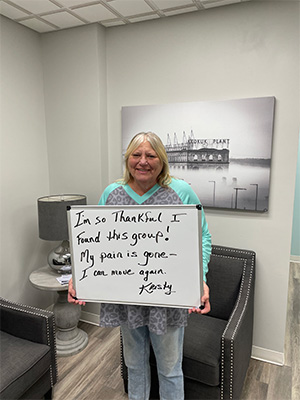 KEOKUK PLANT
I'm so Thankful I
found this group!
My pain is gone-
I can move again.
Kirsty